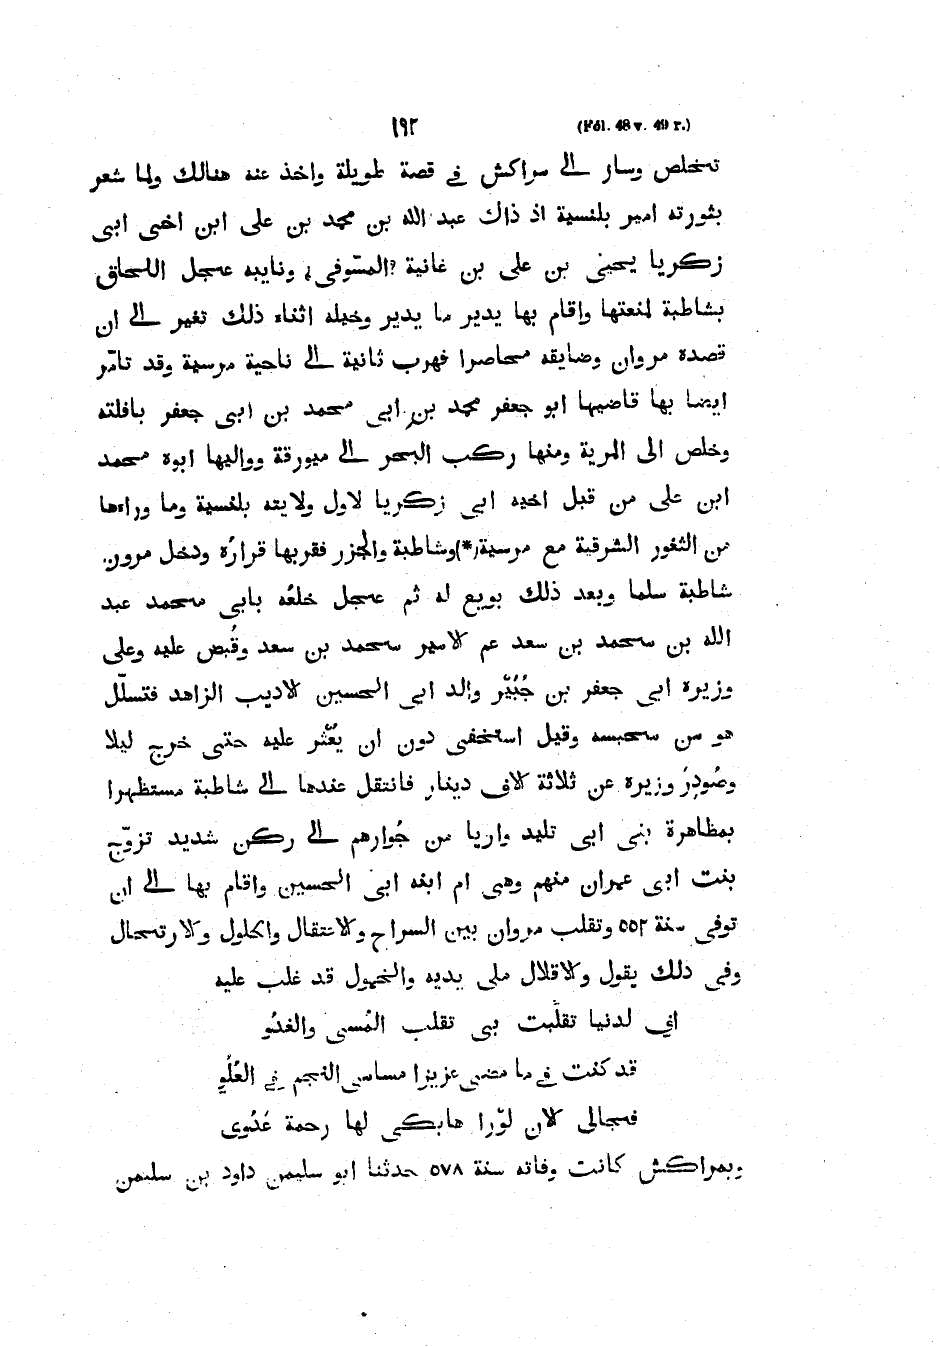 ١٩٢ (Fól. 48 v. 49 r.)
تخلص وسار الى مراكش في قصة طويلة واخذ عنه هنالك ولما شعر
بثورته امير بلنسية اذ ذاك عبد الله بن محمد بن على ابن اخى ابى
زكريا يحيى بن على بن غانية ?المسّوفى? ونايبه عجل اللحاق
بشاطبة لمنعتها واقام بها يدير ما يدير وخيله اثناء ذلك تغير الى ان
قصده مروان وضايقه محاصرا فهرب ثانية الى ناحية مرسية وقد تامّر
ايضا بها قاضيها ابو جعفر محمد بن ابى محمد بن ابى جعفر بافلته
وخلص الى المرية ومنها ركب البحر الى ميورقة وواليها ابوه محمد
ابن على من قبل اخيه ابى زكريا لاول ولايته بلنسية وما وراءها
من الثغور الشرقية مع مرسية(*)وشاطبة والجزر فقربها قراره ودخل مرون
شاطبة سلما وبعد ذلك بويع له ثم عجل خلعُه بابى محمد عبد
الله بن محمد بن سعد عم الامير محمد بن سعد وقُبض عليه وعلى
وزيره ابى جعفر بن جُبَيْر والد ابى الحسين الاديب الزاهد فتسلّل
هو من محبسه وقيل استخفى دون ان يُعْثر عليه حتى خرج ليلا
وصُودِرَ وزيره عن ثلاثة الاف دينار فانتقل عندها الى شاطبة مستظهرا
بمظاهرة بنى ابى تليد واريا من جُوارهم الى ركن شديد تزوّج
بنت ابى عمران منهم وهى ام ابنه ابى الحسين واقام بها الى ان
توفى سنة ٥٥٢ وتقلب مروان بين السراح والاعتقال والحلول والارتحال
وفى ذلك يقول والاقلال ملى يديه والخمول قد غلب عليه
انى لدنيا تقلّبت بى تقلب المُسى والغدُو
قد كنت في ما مضى عزيزا مساسى النجم في العُلُوِ
فحالى الان لوّرا هابكى لها رحمة عَدُوى
وبمراكش كانت وفاته سنة ٥٧٨ حدثنا ابو سليمن داود بن سليمن